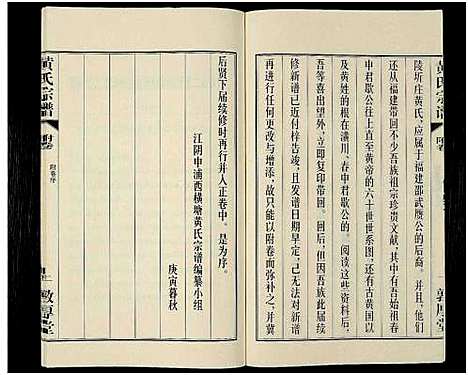 黄氏宗谱
附卷
敦厚堂
陵圻庄黄氏，应属于福建邵武赝公的后裔。并且，他们
还从福建带回不少吾族祖宗珍贵文献，其中有从春
申君歇公往上直至黄帝的六十世世系图，还有古黄国以
及黄姓的根在潢川、春申君歇公的。阅读这些资料后，
吾等喜出望外，立即复印带回。回后，但因吾族此届续
修新谱已近付梓告竣，且因前日期早定，已无法对新谱
再进行任何更改与增添，故而，只能以附卷面弥补之，并冀
后贤下届续修时再行并入正卷中。是为序。
江阴申浦西横塘黄氏宗谱编纂小组
庚寅暮秋
黄氏宗谱
附卷
附卷序
敦厚堂